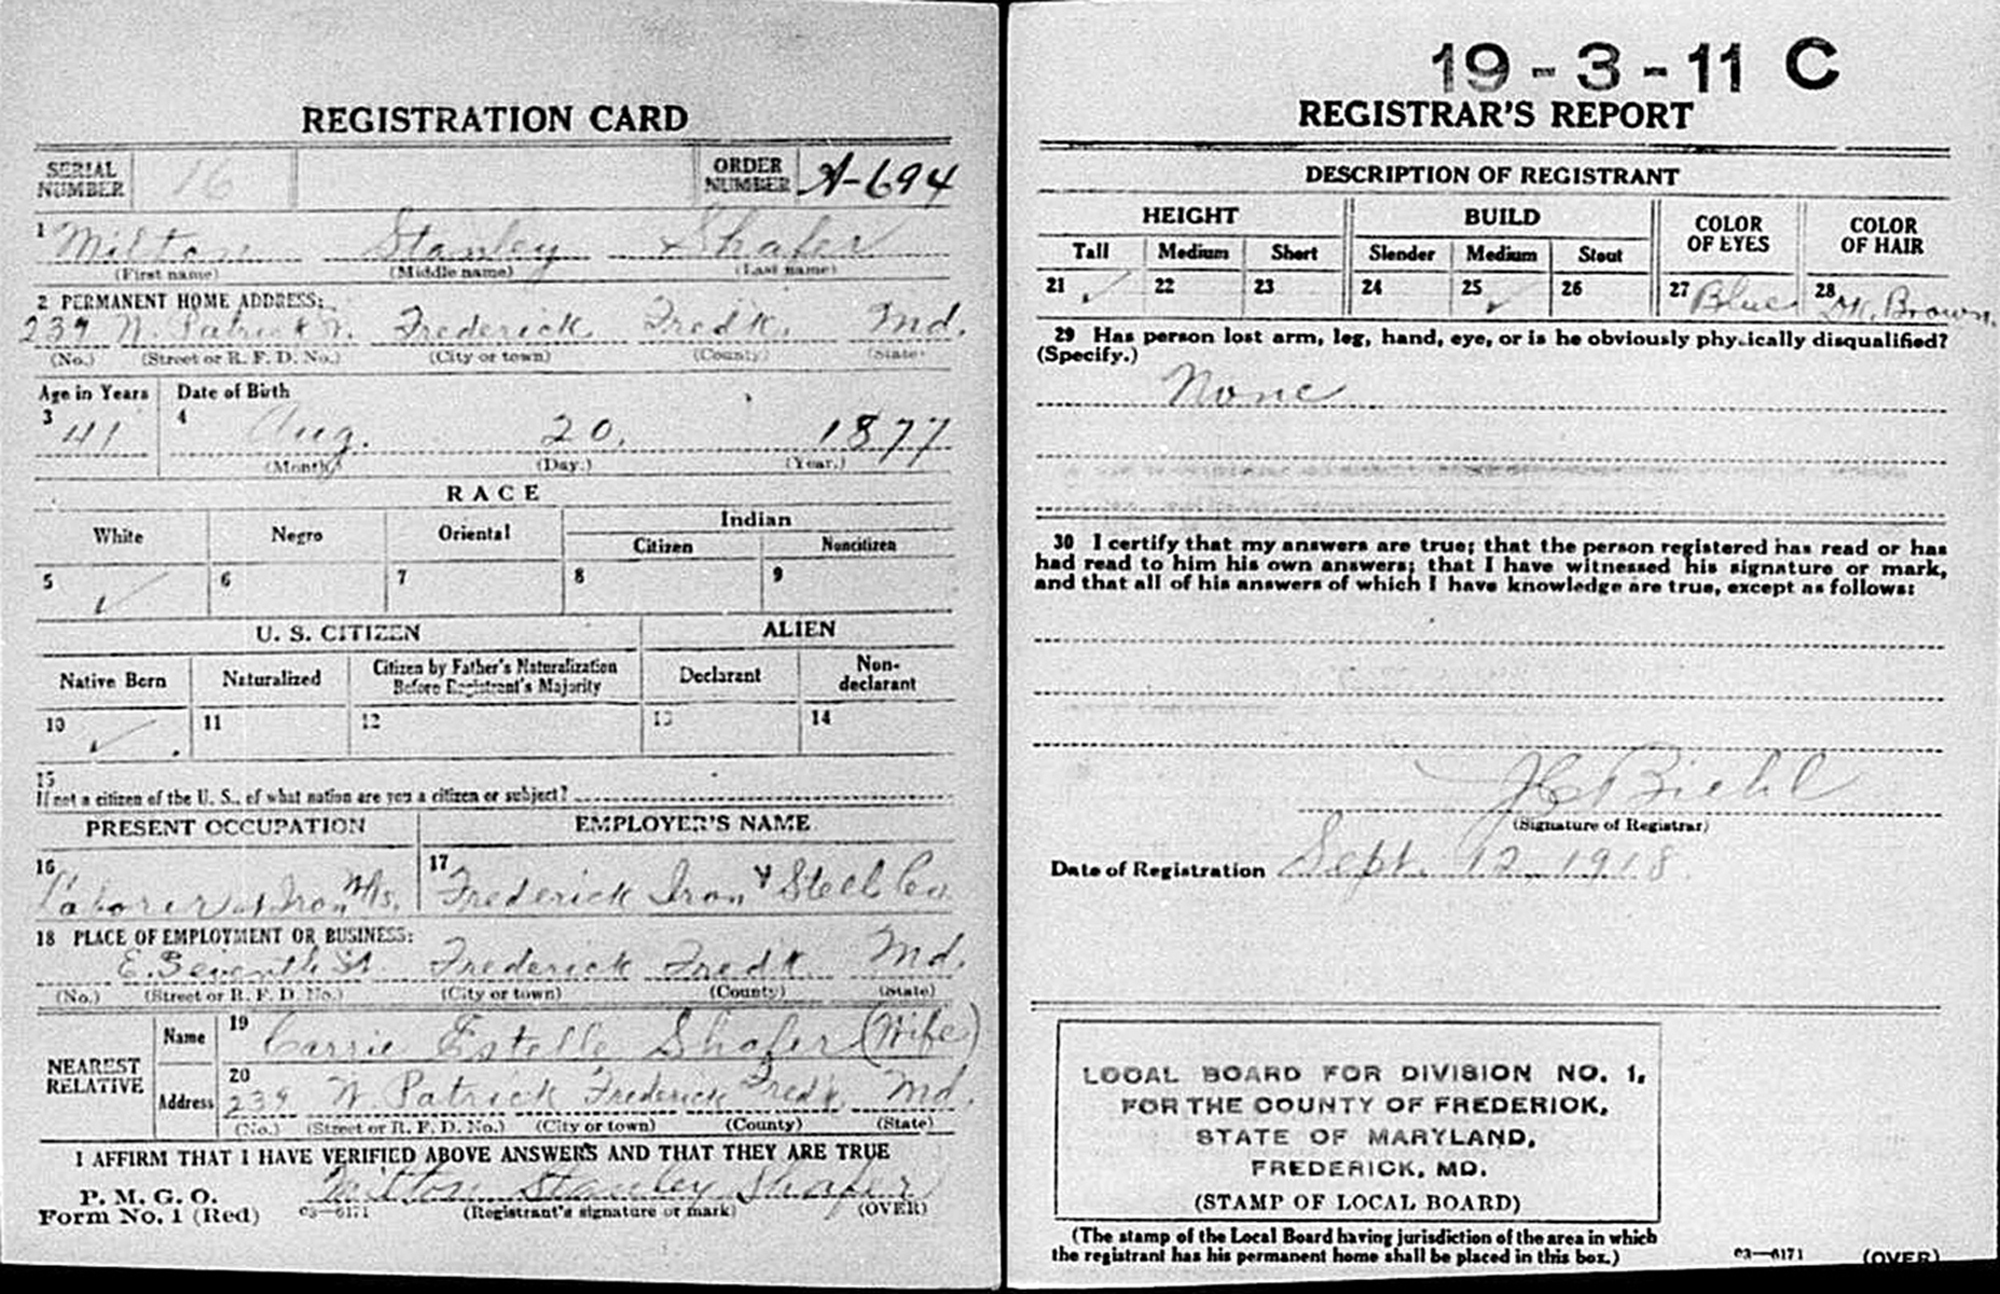 REGISTRATION CARD
SERIAL NUMBER 16 ORDER NUMBER A-694
1 Milton Stanley Shafer
(First name) (Middle name) (Last name)
2 PERMANENT HOME ADDRESS:
239 W. Patrick Frederick Fredk. Md.
(No.) (Street or R. F. D. No.) (City or town) (County) (State)
Age in Years Date of Birth
3 41 4 Aug. 20. 1877
(Month) (Day.) (Year.)
RACE
White Negro Oriental Indian
Citizen Noncitizen
5 ✓ 6 7 8 9
U. S. CITIZEN ALIEN
Native Born Naturalized Citizen by Father's Naturalization Before Registrant's Majority Declarant Non-declarant
10 ✓ 11 12 13 14
15
If not a citizen of the U. S., of what nation are you a citizen or subject?
PRESENT OCCUPATION EMPLOYER'S NAME
16 Laborer at Iron Wks. 17 Frederick Iron & Steel Co.
18 PLACE OF EMPLOYMENT OR BUSINESS:
E. Seventh St. Frederick Fredk. Md.
(No.) (Street or R. F. D. No.) (City or town) (County) (State)
NEAREST RELATIVE
Name 19 Carrie Estelle Shafer (Wife)
Address 20 239 W. Patrick Frederick Fredk. Md.
(No.) (Street or R. F. D. No.) (City or town) (County) (State)
I AFFIRM THAT I HAVE VERIFIED ABOVE ANSWERS AND THAT THEY ARE TRUE
P. M. G. O.
Form No. 1 (Red) 03—6171 Milton Stanley Shafer
(Registrant's signature or mark) (OVER)
19-3-11 C
REGISTRAR'S REPORT
DESCRIPTION OF REGISTRANT
HEIGHT BUILD COLOR OF EYES COLOR OF HAIR
Tall Medium Short Slender Medium Stout
21 ✓ 22 23 24 25 ✓ 26 27 Blue 28 Dk. Brown.
29 Has person lost arm, leg, hand, eye, or is he obviously physically disqualified?
(Specify.)
None
30 I certify that my answers are true; that the person registered has read or has
had read to him his own answers; that I have witnessed his signature or mark,
and that all of his answers of which I have knowledge are true, except as follows:
J C Biehl
(Signature of Registrar)
Date of Registration Sept. 12, 1918.
LOCAL BOARD FOR DIVISION NO. 1,
FOR THE COUNTY OF FREDERICK,
STATE OF MARYLAND,
FREDERICK, MD.
(STAMP OF LOCAL BOARD)
(The stamp of the Local Board having jurisdiction of the area in which
the registrant has his permanent home shall be placed in this box.)
03—6171 (OVER)